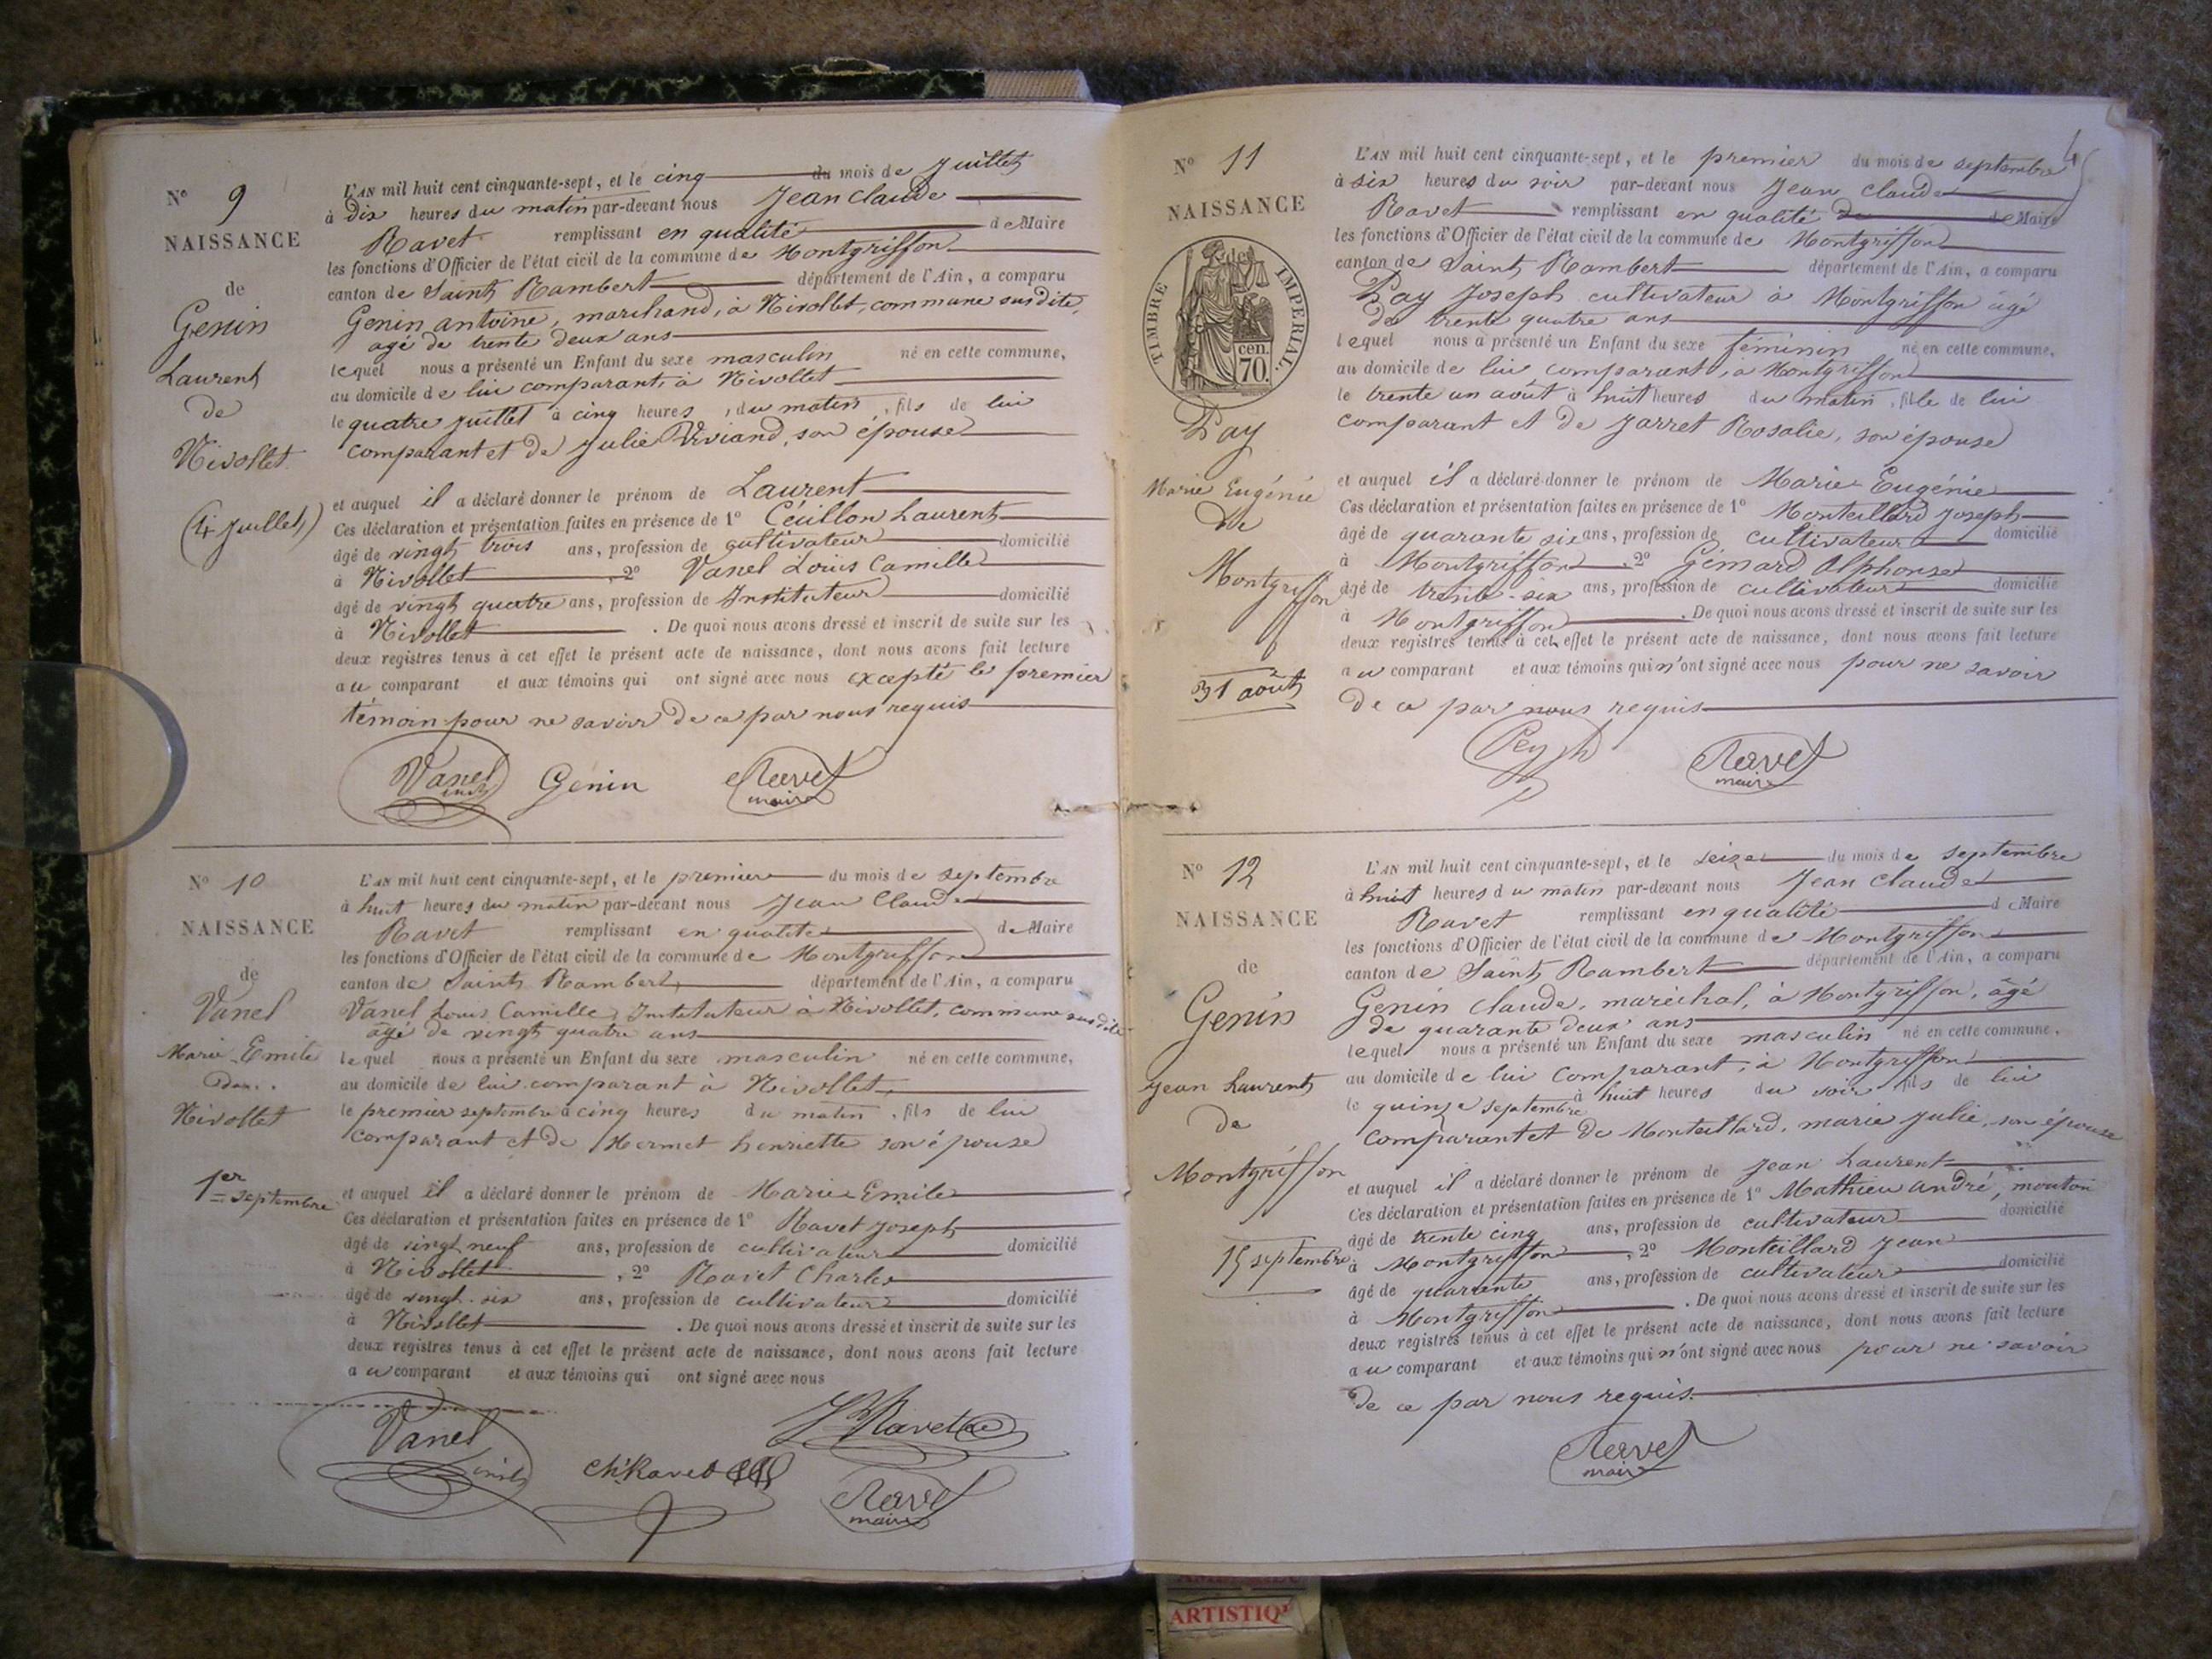 N° 9
NAISSANCE
de
Genin
Laurent
de
Nivollet
(4 Juillet)
L'AN mil huit cent cinquante-sept, et le cinq du mois de Juillet
à dix heures du matin par-devant nous Jean Claude
Ravet remplissant en qualité de Maire
les fonctions d'Officier de l'état civil de la commune de Montgriffon
canton de Saint Rambert département de l'Ain, a comparu
Genin antoine, marchand, à Nivollet, commune susdite,
agé de trente deux ans
lequel nous a présenté un Enfant du sexe masculin né en cette commune,
au domicile de lui comparant, à Nivollet
le quatre juillet à cinq heures, du matin, fils de lui
comparant et de Julie Viviand, son épouse
et auquel il a déclaré donner le prénom de Laurent
Ces déclaration et présentation faites en présence de 1° Laurent
âgé de vingt trois ans, profession de cultivateur domicilié
à Nivollet, 2° Vanel Louis Camille
âgé de vingt quatre ans, profession de Instituteur domicilié
à Nivollet. De quoi nous avons dressé et inscrit de suite sur les
deux registres tenus à cet effet le présent acte de naissance, dont nous avons fait lecture
au comparant et aux témoins qui ont signé avec nous excepté le premier
témoin pour ne savoir de ce par nous requis
Vanel Genin Ravet
maire
N° 10
NAISSANCE
de
Vanel
Marie Emile
de
Nivollet
1er septembre
L'AN mil huit cent cinquante-sept, et le premier du mois de septembre
à huit heures du matin par-devant nous Jean Claude
Ravet remplissant en qualité de Maire
les fonctions d'Officier de l'état civil de la commune de Montgriffon
canton de Saint Rambert, département de l'Ain, a comparu
Vanel Louis Camille, Instituteur à Nivollet, commune susdite
âgé de vingt quatre ans
lequel nous a présenté un Enfant du sexe masculin né en cette commune,
au domicile de lui comparant à Nivollet,
le premier septembre à cinq heures du matin, fils de lui
comparant et de Mermet henriette son épouse
et auquel il a déclaré donner le prénom de Marie Emile
Ces déclaration et présentation faites en présence de 1° Ravet Joseph
âgé de vingt neuf ans, profession de cultivateur domicilié
à Nivollet, 2° Ravet Charles
âgé de vingt-six ans, profession de cultivateur domicilié
à Nivollet. De quoi nous avons dressé et inscrit de suite sur les
deux registres tenus à cet effet le présent acte de naissance, dont nous avons fait lecture
au comparant et aux témoins qui ont signé avec nous
Vanel Ravet
Ch. Ravet Ravet
maire
N° 11
NAISSANCE
TIMBRE IMPERIAL.
70 cen.
Pay
Marie Eugénie
de
Montgriffon
31 août
L'AN mil huit cent cinquante-sept, et le premier du mois de septembre
à six heures du soir par-devant nous Jean Claude
Ravet remplissant en qualité de Maire
les fonctions d'Officier de l'état civil de la commune de Montgriffon
canton de Saint Rambert département de l'Ain, a comparu
Pay Joseph cultivateur à Montgriffon âgé
de trente quatre ans
lequel nous a présenté un Enfant du sexe féminin né en cette commune,
au domicile de lui comparant, à Montgriffon
le trente un août à huit heures du matin, fille de lui
comparant et de Jarret Rosalie, son épouse
et auquel il a déclaré donner le prénom de Marie Eugénie
Ces déclaration et présentation faites en présence de 1° Monteillard Joseph
âgé de quarante six ans, profession de cultivateur domicilié
à Montgriffon, 2° Gémard Alphonse
âgé de trente-six ans, profession de cultivateur domicilié
à Montgriffon. De quoi nous avons dressé et inscrit de suite sur les
deux registres tenus à cet effet le présent acte de naissance, dont nous avons fait lecture
au comparant et aux témoins qui n'ont signé avec nous pour ne savoir
de ce par nous requis
Ravet
maire
N° 12
NAISSANCE
de
Genin
Jean Laurent
de
Montgriffon
15 septembre
L'AN mil huit cent cinquante-sept, et le seize du mois de septembre
à huit heures du matin par-devant nous Jean Claude
Ravet remplissant en qualité de Maire
les fonctions d'Officier de l'état civil de la commune de Montgriffon
canton de Saint Rambert département de l'Ain, a comparu
Genin Claude, maréchal, à Montgriffon, âgé
de quarante deux ans
lequel nous a présenté un Enfant du sexe masculin né en cette commune,
au domicile de lui comparant, à Montgriffon
le quinze septembre à huit heures du soir fils de lui
comparant et de Monteillard, marie Julie, son épouse
et auquel il a déclaré donner le prénom de Jean Laurent
Ces déclaration et présentation faites en présence de 1° Mathieu andré, mouton
âgé de trente cinq ans, profession de cultivateur domicilié
à Montgriffon, 2° Monteillard Jean
âgé de quarrente ans, profession de cultivateur domicilié
à Montgriffon. De quoi nous avons dressé et inscrit de suite sur les
deux registres tenus à cet effet le présent acte de naissance, dont nous avons fait lecture
au comparant et aux témoins qui n'ont signé avec nous pour ne savoir
de ce par nous requis.
Ravet
maire
ARTISTIQ